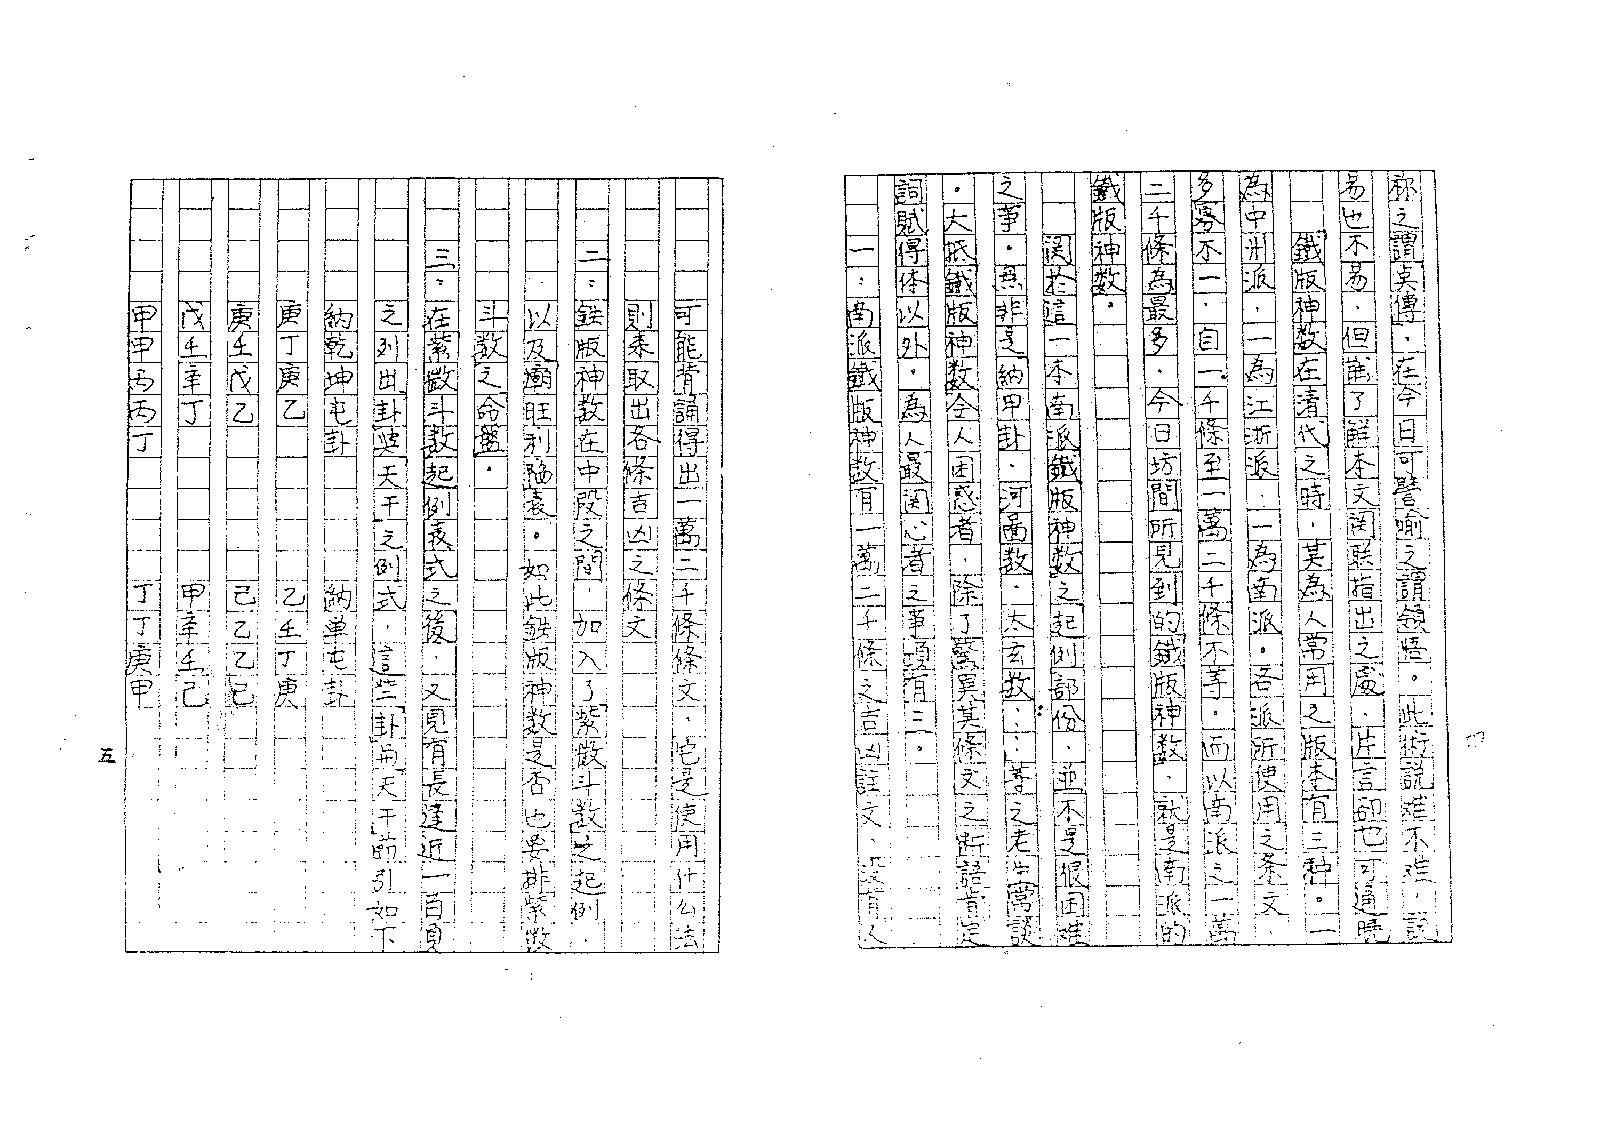 称之謂真傳．在今日可譬喻之謂領悟。此術說难不难．説
易也不易．但能了解本文関联指出之處．片言卻也可通曉
鐵版神数在清代之時．其為人常用之版本有三种。一
為中州派．一為江浙派．一為南派。各派所使用之条文．
多寡不一．自一千條至一萬二千條不等。而以南派之一萬
二千條為最多．今日坊間所見到的鐵版神数．就是南派的
鐵版神数。
関於這一本南派鐵版神数之起例部份．並不是很困难
之事。無非是納甲卦．河圖数．太玄数⋯等之老生常談
。大抵鐵版神数令人困惑者．除了驚異其條文之断語肯定
詞賦得体以外。為人最関心者之事項有三。
一：南派鐵版神数有一萬二千條之吉凶註文．没有人
可能背誦得出一萬二千條條文．它是使用什么法
則来取出各條吉凶之條文
二：鉄版神数在中段之間．加入了紫微斗数之起例．
以及廟旺利陷表。如此鉄版神数是否也要排紫微
斗数之命盤。
三：在紫微斗数起例表式之後．又見有長達近一百頁
之列出卦與天干之例式．這些卦与天干節引如下
納乾坤屯卦 納单屯卦
庚丁庚乙 乙壬丁庚
庚壬戊乙 己乙乙己
戊壬辛丁 甲辛壬己
甲甲丙丙丁 丁丁庚甲
五